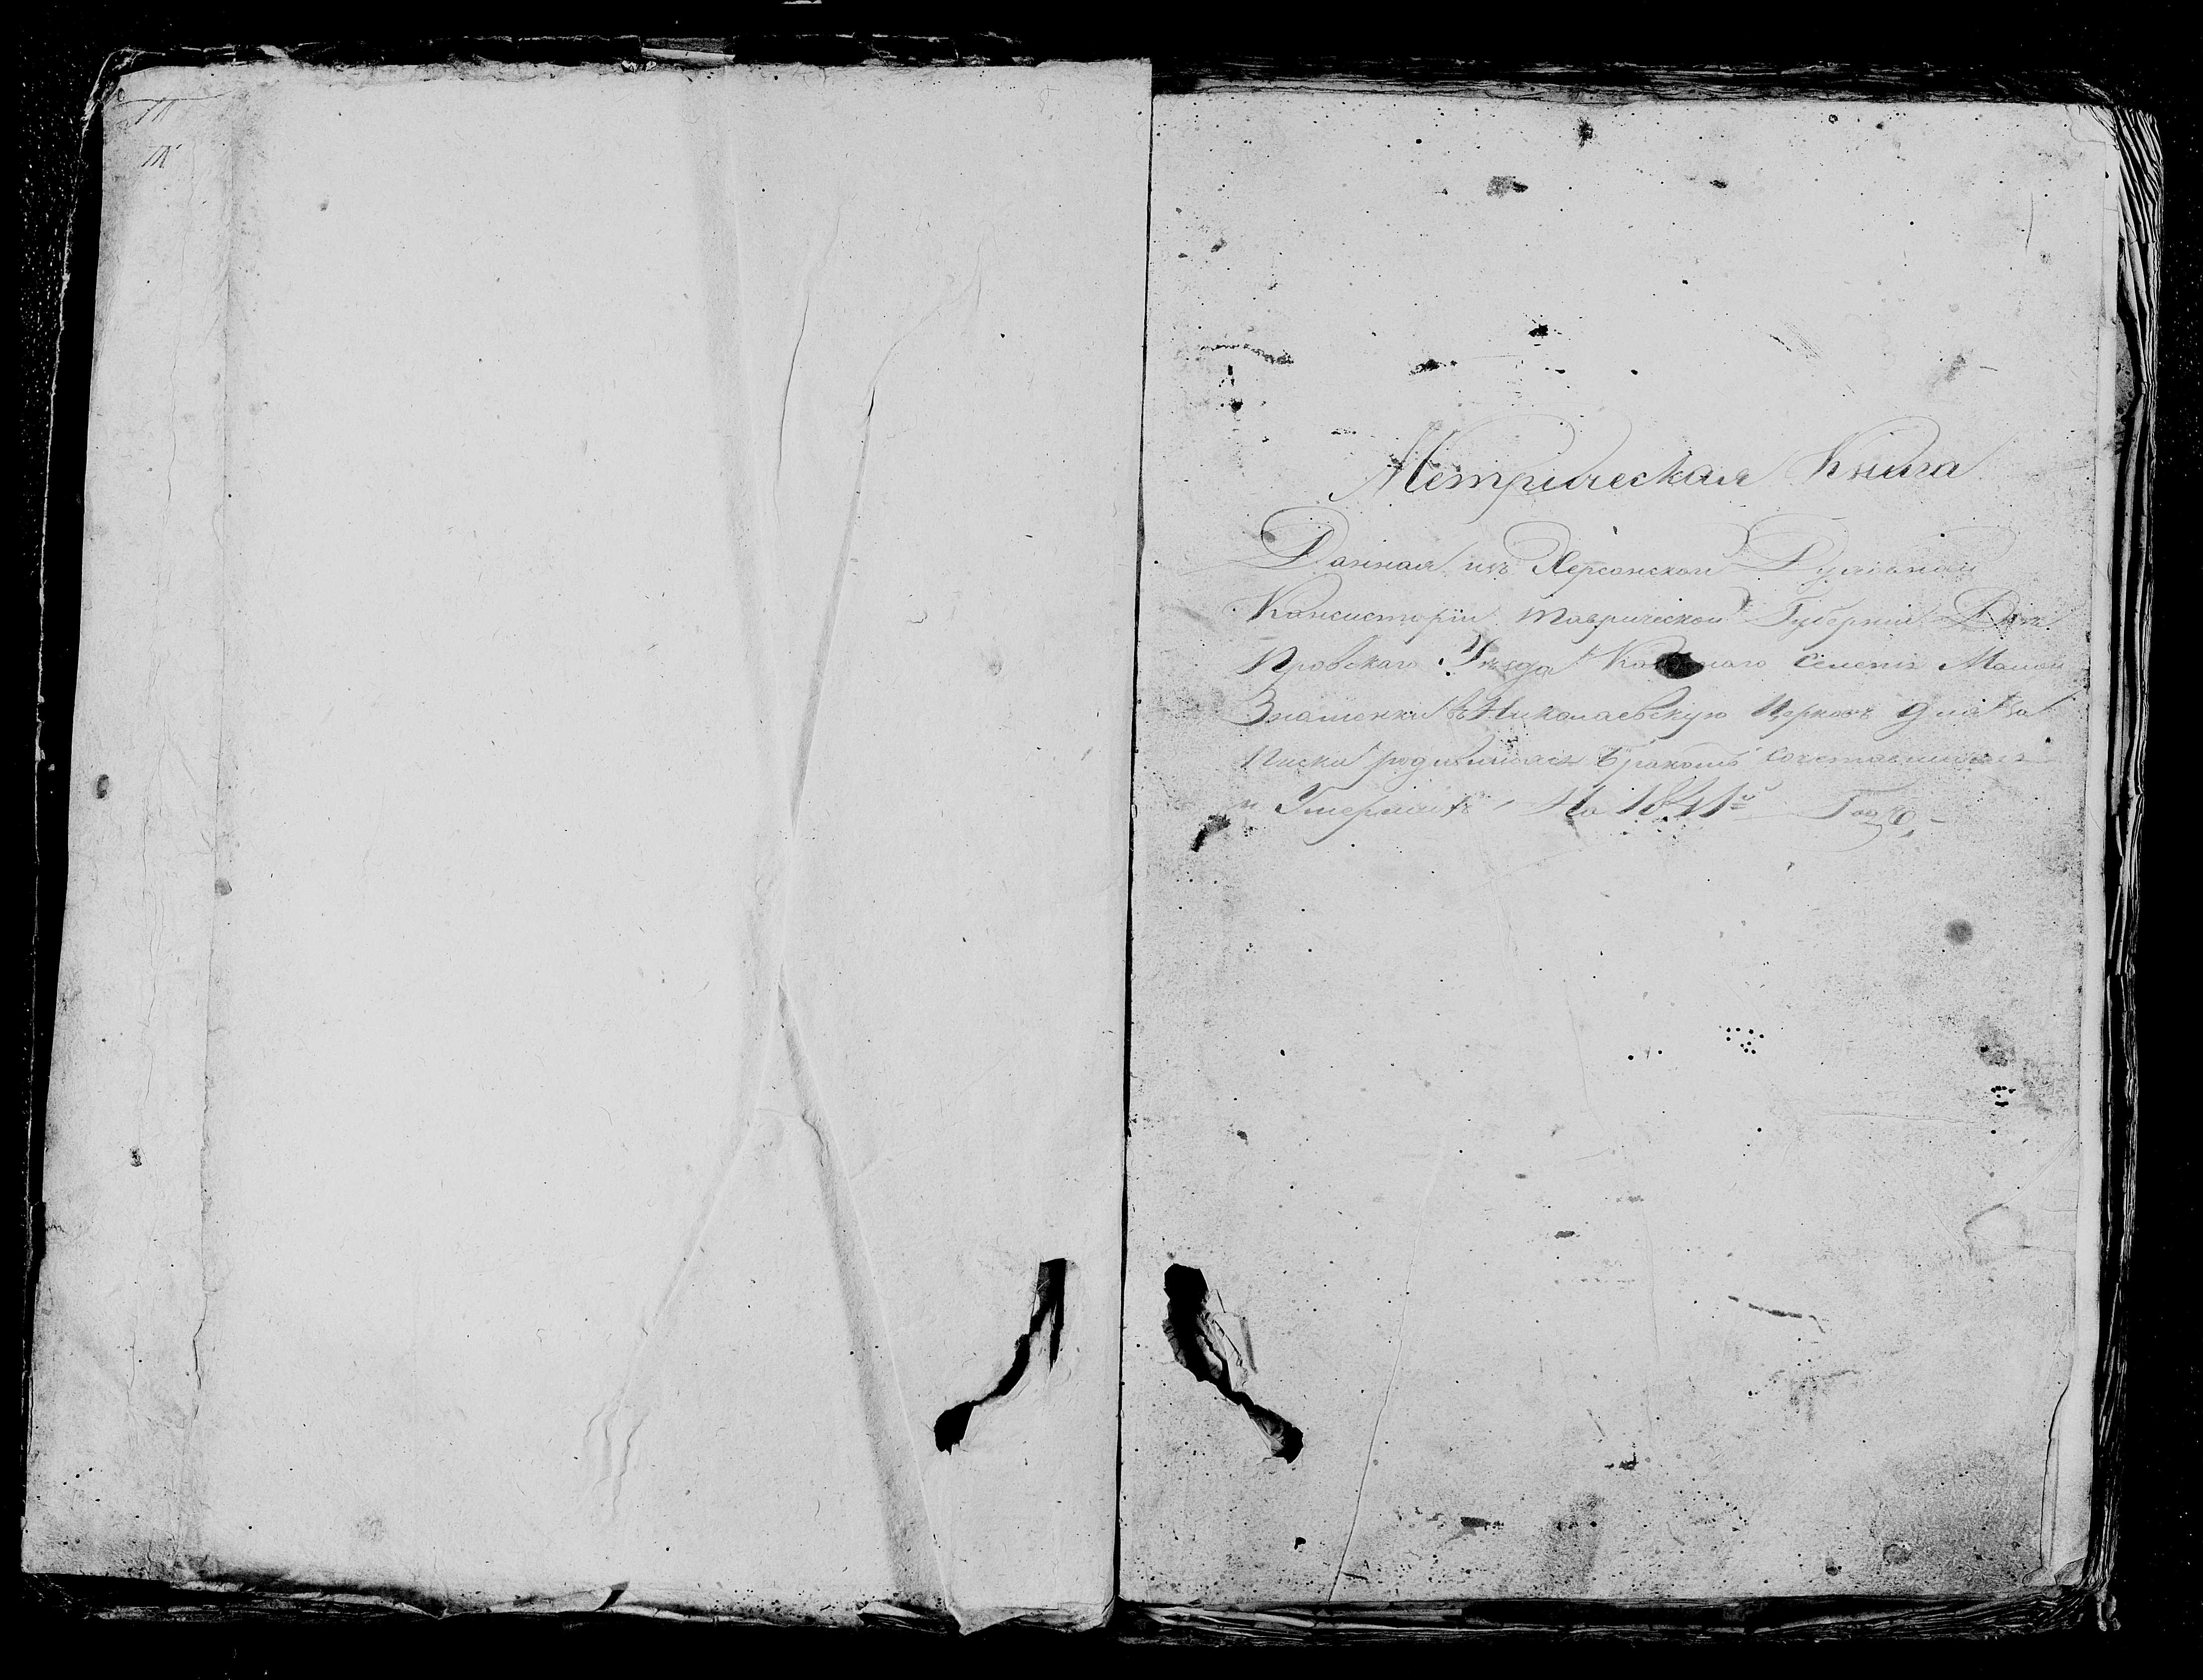 Метрическая Книга
Данная изъ Херсонской Духовной
Консисторіи Таврической Губерніи Днѣ
провскаго Уѣзда Казеннаго Селенія Малой
Знаменки въ Николаевскую Церковь для за
писки родившихся Бракомъ сочетавшихся
и Умершихъ, На 1841й Годъ,